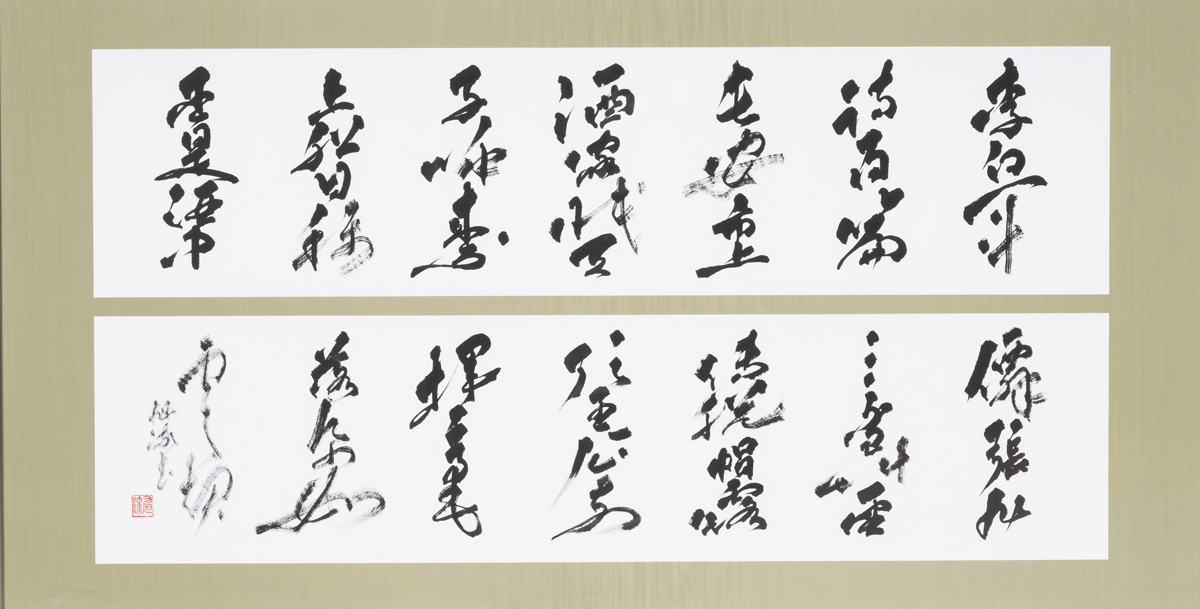 李白一斗
詩百篇
長安市上
酒家眠天
子呼来不
上船自称
臣是酒中
仙張旭
三杯草聖
傳脱帽露
頂王公前
揮毫
落紙如
雲烟